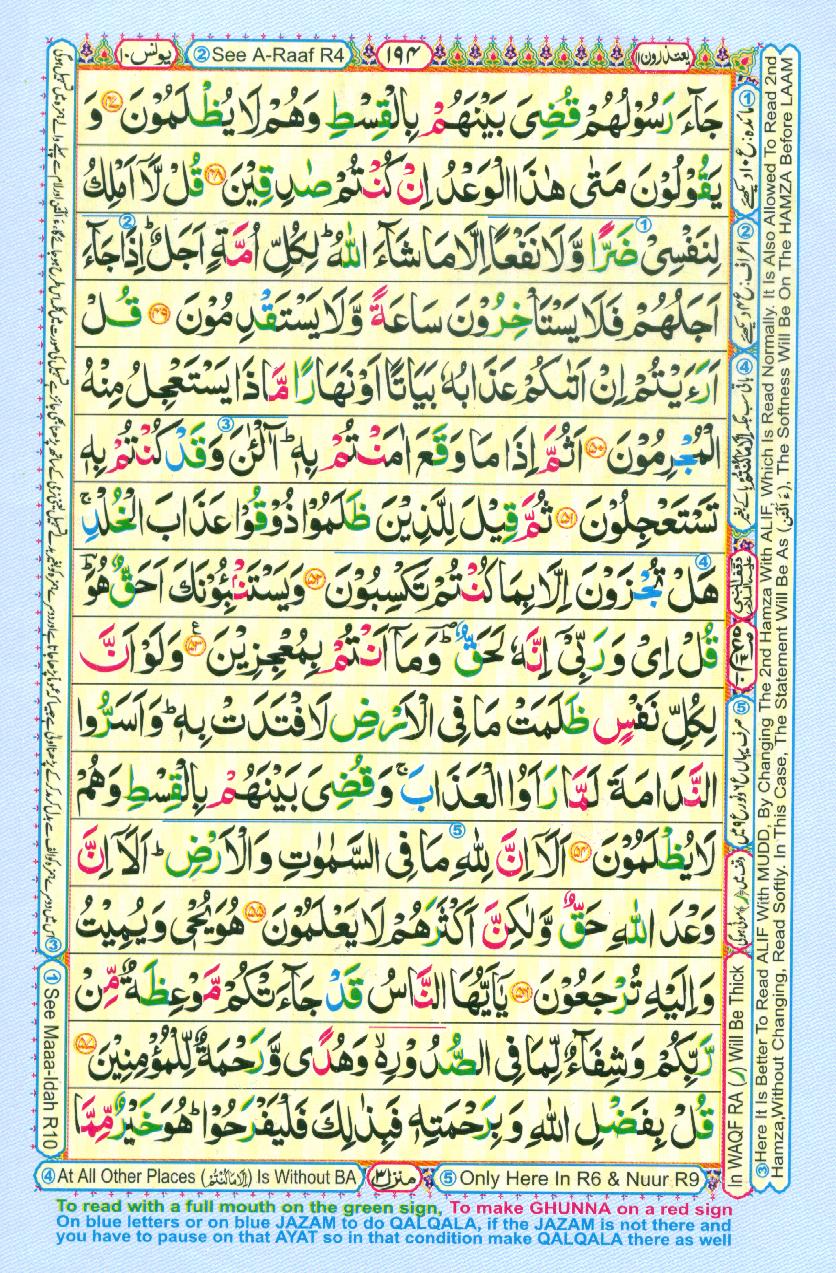 یونس ۱۰
② See A-Raaf R4
۱۹۴
یعتذرون ۱۱
جَآءَ رَسُوْلُهُمْ قُضِیَ بَیْنَهُمْ بِالْقِسْطِ وَهُمْ لَا یُظْلَمُوْنَ ﴿۴۷﴾ وَ
یَقُوْلُوْنَ مَتٰی هٰذَا الْوَعْدُ اِنْ كُنْتُمْ صٰدِقِیْنَ ﴿۴۸﴾ قُلْ لَّاۤ اَمْلِكُ
لِنَفْسِیْ ضَرًّا وَّلَا نَفْعًا اِلَّا مَا شَآءَ اللّٰهُ ؕ لِكُلِّ اُمَّةٍ اَجَلٌ ؕ اِذَا جَآءَ
اَجَلُهُمْ فَلَا یَسْتَاْخِرُوْنَ سَاعَةً وَّلَا یَسْتَقْدِمُوْنَ ﴿۴۹﴾ قُلْ
اَرَءَیْتُمْ اِنْ اَتٰىكُمْ عَذَابُهٗ بَیَاتًا اَوْ نَهَارًا مَّاذَا یَسْتَعْجِلُ مِنْهُ
الْمُجْرِمُوْنَ ﴿۵۰﴾ اَثُمَّ اِذَا مَا وَقَعَ اٰمَنْتُمْ بِهٖ ؕ آٰلْـٰٔنَ وَقَدْ كُنْتُمْ بِهٖ
تَسْتَعْجِلُوْنَ ﴿۵۱﴾ ثُمَّ قِیْلَ لِلَّذِیْنَ ظَلَمُوْا ذُوْقُوْا عَذَابَ الْخُلْدِ ۚ
هَلْ تُجْزَوْنَ اِلَّا بِمَا كُنْتُمْ تَكْسِبُوْنَ ﴿۵۲﴾ وَیَسْتَنْۢبِـُٔوْنَكَ اَحَقٌّ هُوَ ؕ
قُلْ اِیْ وَرَبِّیْۤ اِنَّهٗ لَحَقٌّ ؔؕ وَمَاۤ اَنْتُمْ بِمُعْجِزِیْنَ ﴿۵۳﴾ وَلَوْ اَنَّ
لِكُلِّ نَفْسٍ ظَلَمَتْ مَا فِی الْاَرْضِ لَافْتَدَتْ بِهٖ ؕ وَاَسَرُّوا
النَّدَامَةَ لَمَّا رَاَوُا الْعَذَابَ ۚ وَقُضِیَ بَیْنَهُمْ بِالْقِسْطِ وَهُمْ
لَا یُظْلَمُوْنَ ﴿۵۴﴾ اَلَاۤ اِنَّ لِلّٰهِ مَا فِی السَّمٰوٰتِ وَالْاَرْضِ ؕ اَلَاۤ اِنَّ
وَعْدَ اللّٰهِ حَقٌّ وَّلٰكِنَّ اَكْثَرَهُمْ لَا یَعْلَمُوْنَ ﴿۵۵﴾ هُوَ یُحْیٖ وَیُمِیْتُ
وَاِلَیْهِ تُرْجَعُوْنَ ﴿۵۶﴾ یٰۤاَیُّهَا النَّاسُ قَدْ جَآءَتْكُمْ مَّوْعِظَةٌ مِّنْ
رَّبِّكُمْ وَشِفَآءٌ لِّمَا فِی الصُّدُوْرِ ۙ وَهُدًی وَّرَحْمَةٌ لِّلْمُؤْمِنِیْنَ ﴿۵۷﴾
قُلْ بِفَضْلِ اللّٰهِ وَبِرَحْمَتِهٖ فَبِذٰلِكَ فَلْیَفْرَحُوْا ؕ هُوَ خَیْرٌ مِّمَّا
① See Maaa-idah R10
In WAQF RA (ر) Will Be Thick
③ Here It Is Better To Read ALIF With MUDD, By Changing The 2nd Hamza With ALIF, Which Is Read Normally. It Is Also Allowed To Read 2nd
Hamza, Without Changing, Read Softly. In This Case, The Statement Will Be As (ءَ اَلْئٰنَ), The Softness Will Be On The HAMZA Before LAAM
④ At All Other Places (اِلَّا مَا كُنْتُمْ) Is Without BA
منزل ۳
⑤ Only Here In R6 & Nuur R9
To read with a full mouth on the green sign, To make GHUNNA on a red sign
On blue letters or on blue JAZAM to do QALQALA, if the JAZAM is not there and
you have to pause on that AYAT so in that condition make QALQALA there as well